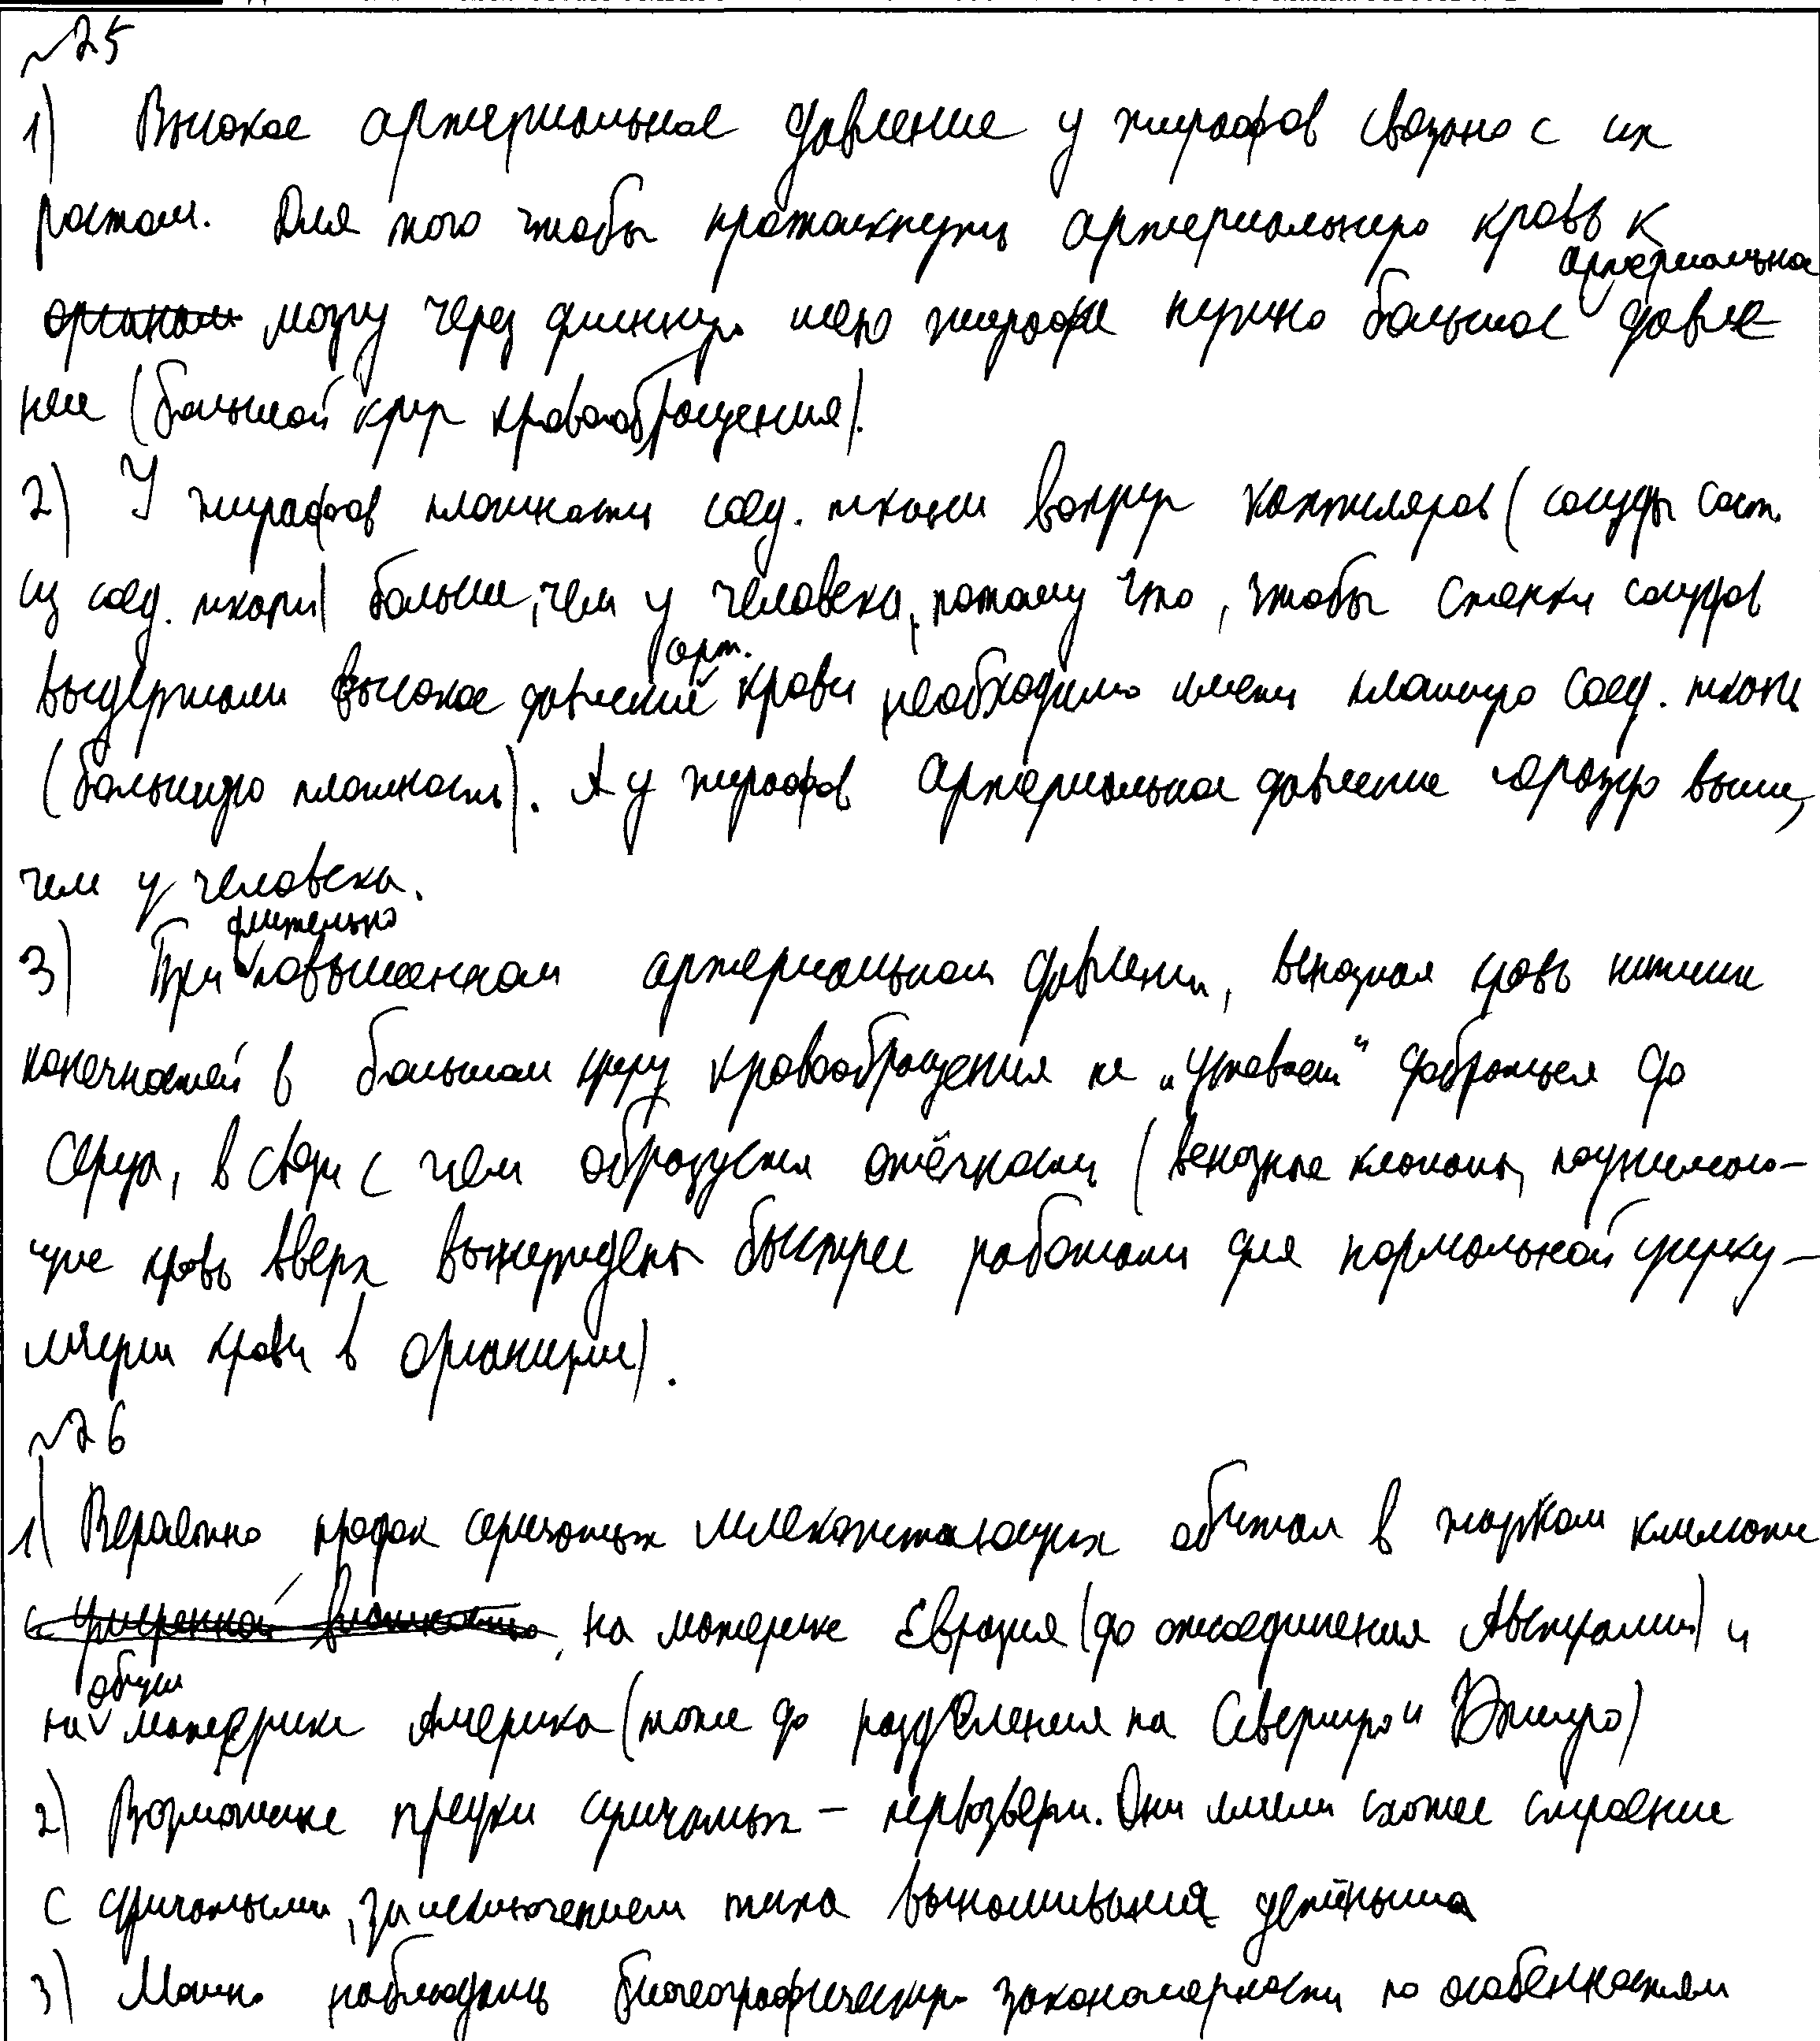 №25
1) Высокое артериальное давление у жирафов связано с их
ростом. Для того чтобы протолкнуть артериальную кровь к
артериальное
органам мозгу через длинную шею жирафа нужно большое давле
ние (большой круг кровообращения).
2) У жирафов плотность соед. ткани вокруг капилляров (сосуды сост.
из соед. ткани) больше, чем у человека, потому что, чтобы стенки сосудов
арт.
выдержали высокое давление крови необходимо иметь плотную соед. ткань
(большую плотность). А у жирафов артериальное давление гораздо выше,
чем у человека.
длительно
3) При повышенном артериальном давлении, венозная кровь нижних
конечностей в большом кругу кровообращения не "успевает" добраться до
сердца, в связи с чем образуется отёчность (венозные клапаны, поднимаю-
щие кровь вверх вынуждены быстрее работать для нормальной цирку-
ляции крови в организме).
№26
1) Вероятно предок сумчатых млекопитающих обитал в жарком климате
с умеренной влажностью, на материке Евразия (до отсоединения Австралии) и
общем
на материке Америка (тоже до разделения на Северную и Южную)
2) Возможные предки сумчатых - первозвери. Они имели схожее строение
с сумчатыми, за исключением типа вынашивания детёныша
3) Можно наблюдать биогеографическую закономерность по особенностям